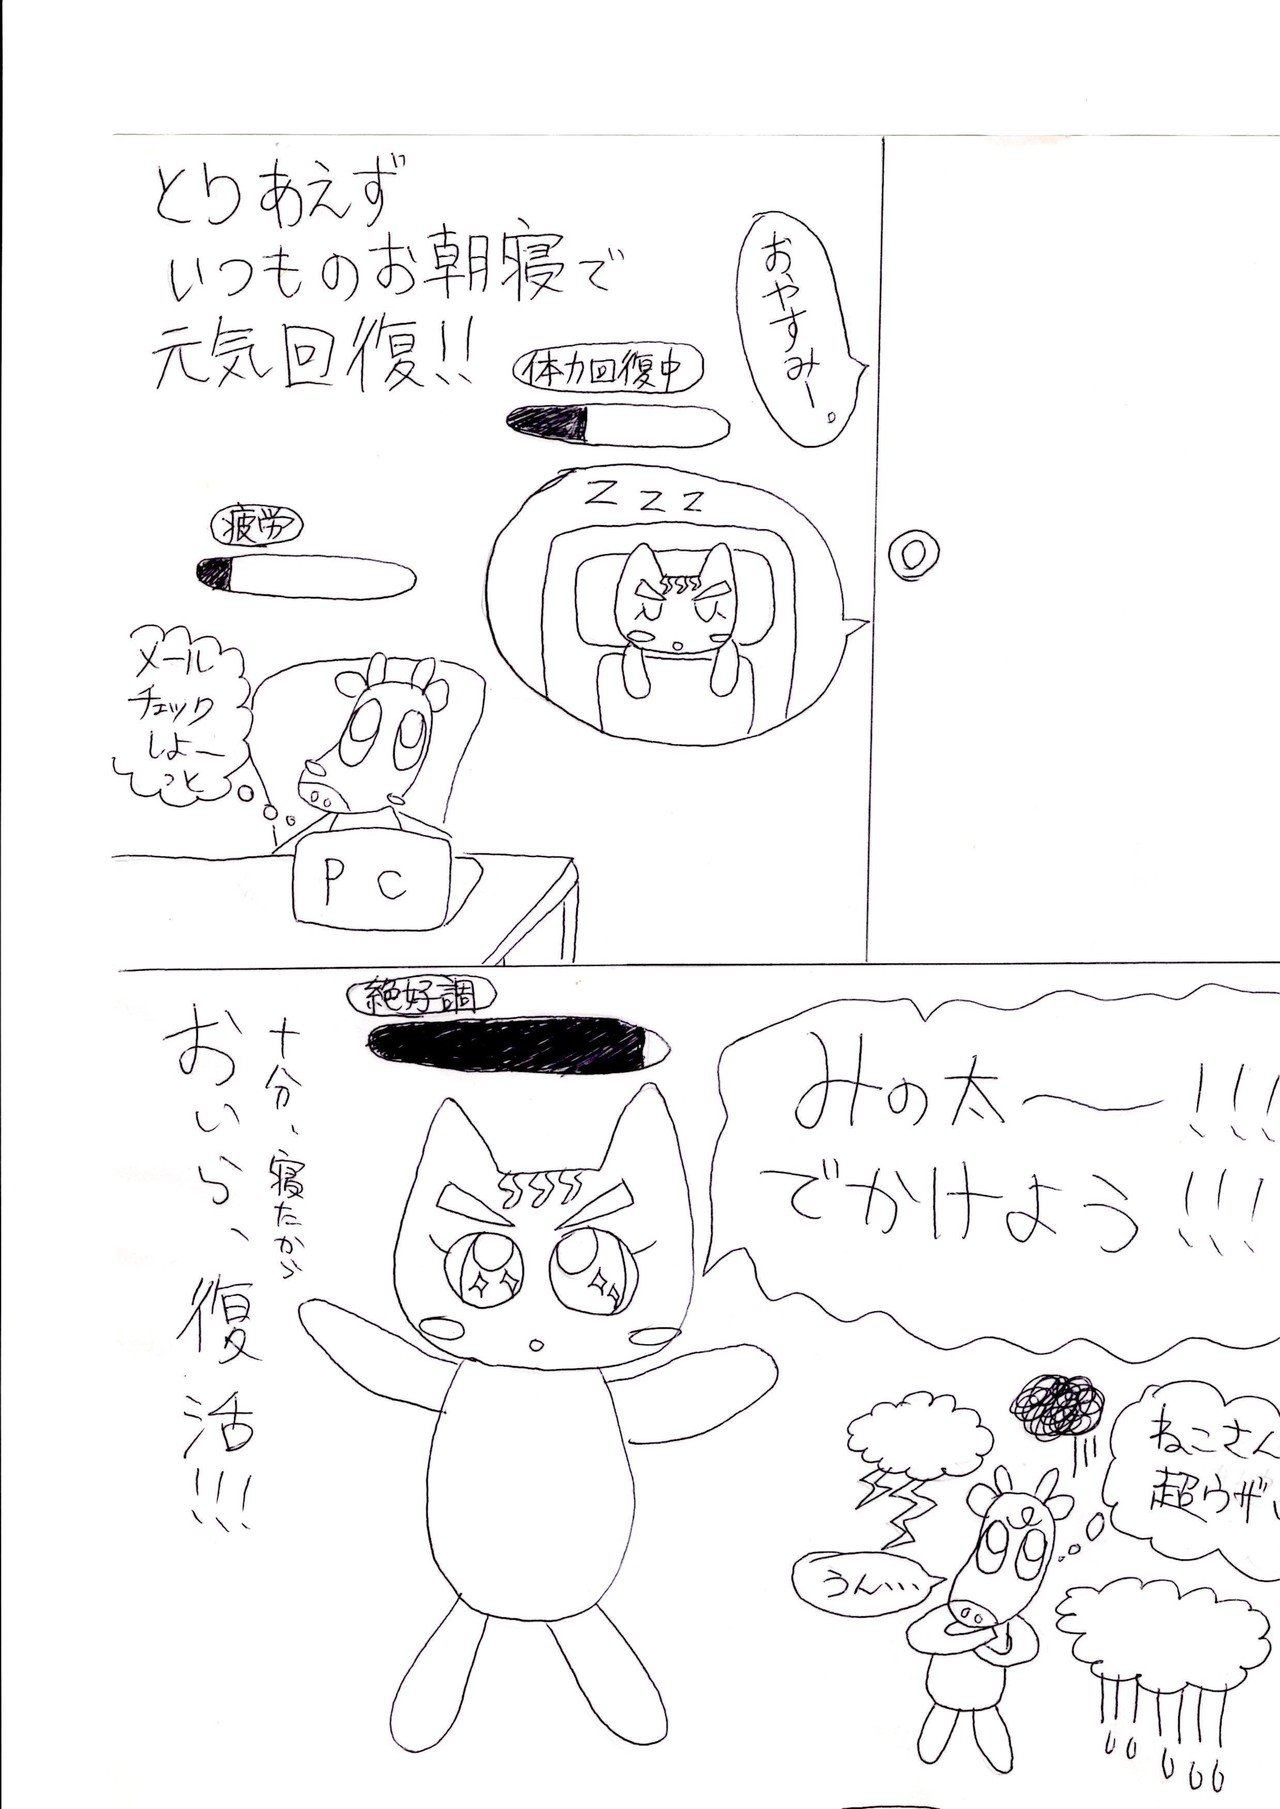 とりあえず
いつものお朝寝で
元気回復!!
おやすみー。
体力回復中
ZZZ
疲労
メール
チェック
しよー
っと
PC
絶好調
十分、寝たから
おいら、復活!!!
みの太〜!!!
でかけよう!!!
ねこさん
超ウザい
うん・・・